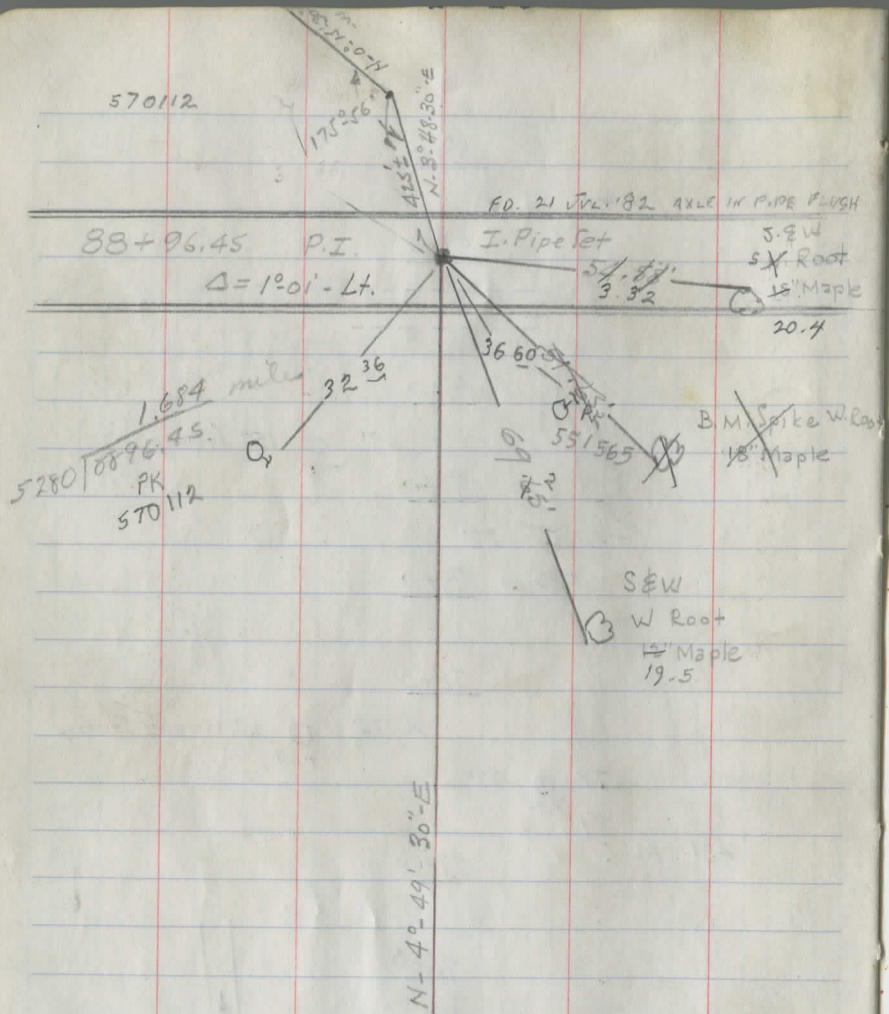 570112
175°-56'
425'±
N-3°-48'-30"-E
FD. 21 JUL. '82 AXLE IN PIPE FLUSH
88+96.45 P.I.
I. Pipe Set
Δ = 1°-01' - Lt.
S.&W
S. Root
18" Maple
20.4
3.32
36 60
32 36
1.684 miles
5280 8896.45
PK
570112
551565
B.M. Spike W. Root
18" Maple
69
S&W
W Root
12" Maple
19.5
N-4°-49'-30"-E